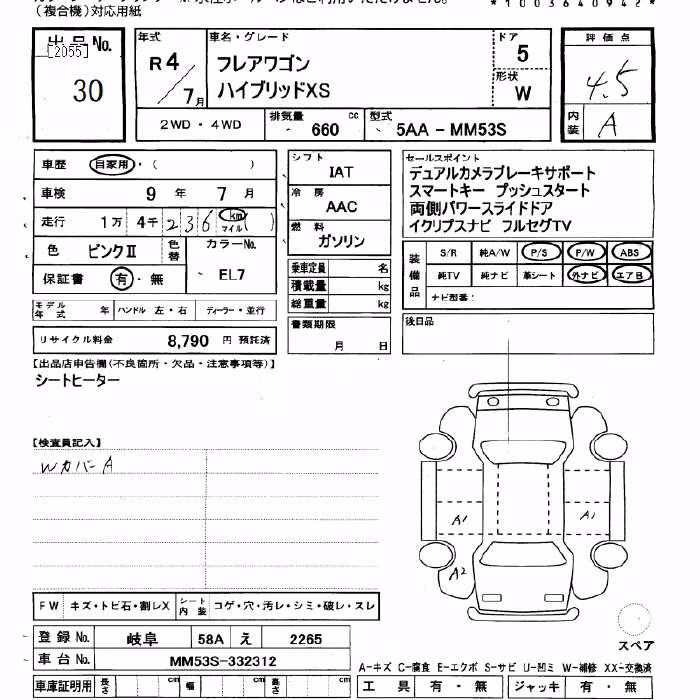 (複合機)対応用紙
*1003640942*
出品No.
[2055]
30
年式
R4
7月
車名・グレード
フレアワゴン
ハイブリッドXS
ドア
5
形状
W
評価点
4.5
内装
A
2WD・4WD
排気量
660
cc
型式
5AA - MM53S
車歴
自家用・( )
車検
9 年 7 月
走行
1万 4千 236 km マイル ( )
色
ピンクⅡ
色替
カラーNo.
EL7
保証書
有・無
シフト
IAT
冷房
AAC
燃料
ガソリン
乗車定員 名
積載量 kg
総重量 kg
セールスポイント
デュアルカメラブレーキサポート
スマートキー プッシュスタート
両側パワースライドドア
イクリプスナビ フルセグTV
装備品
S/R 純A/W P/S P/W ABS
純TV 純ナビ 革シート 外ナビ エアB
ナビ型番:
モデル年式 年 ハンドル 左・右 ディーラー・並行
リサイクル料金 8,790 円 預託済
書類期限
月 日
後日品
【出品店申告欄(不良箇所・欠品・注意事項等)】
シートヒーター
【検査員記入】
WカバーA
A1
A1
A2
FW キズ・トビ石・割レX シート内装 コゲ・穴・汚レ・シミ・破レ・スレ
登録No. 岐阜 58A え 2265
車台No. MM53S-332312
車庫証明用 長さ cm 幅 cm 高さ cm
スペア
A-キズ C-腐食 E-エクボ S-サビ U-凹ミ W-補修 XX-交換済
工具 有・無 ジャッキ 有・無